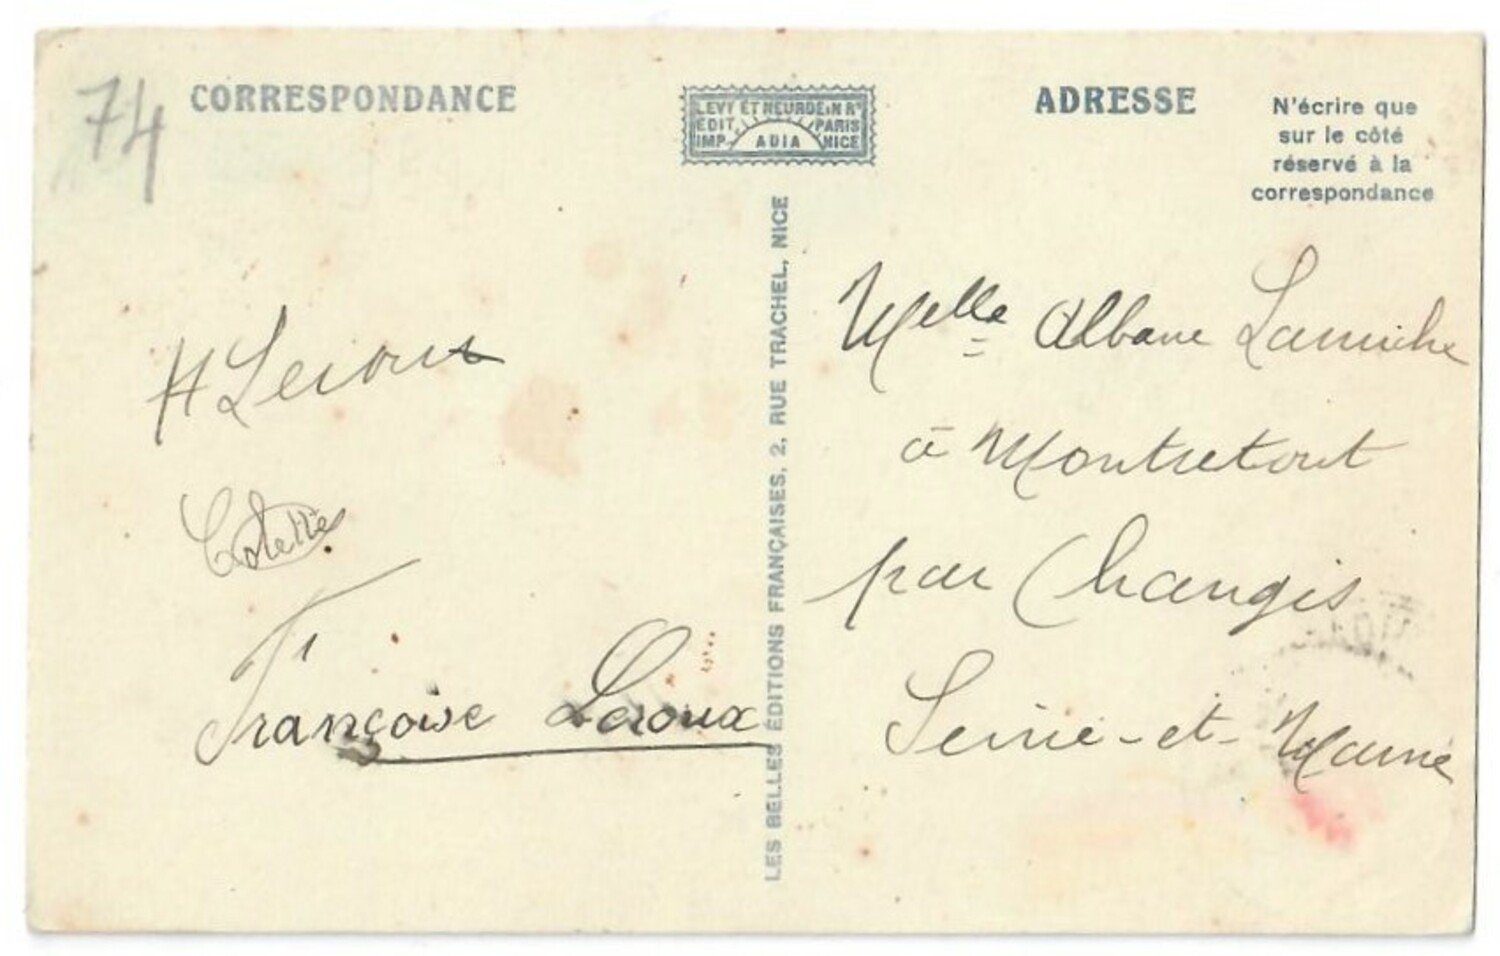 74
CORRESPONDANCE
LEVY ET NEURDEIN Rs
EDIT. PARIS
IMP. ADIA NICE
ADRESSE
N'écrire que
sur le côté
réservé à la
correspondance
LES BELLES ÉDITIONS FRANÇAISES, 2, RUE TRACHEL, NICE
H Leroux
Colette
Françoise Leroux
Melle Albane Lamiche
à Montretout
par Changis
Seine-et-Marne